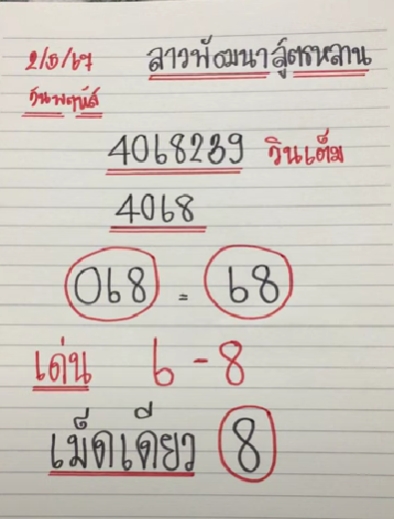 2/5/67 ลาวพัฒนาสูตรหลาน
วันพฤหัส
4068239 วินเต็ม
4068
068 = 68
เด่น 6 - 8
เม็ดเดียว 8